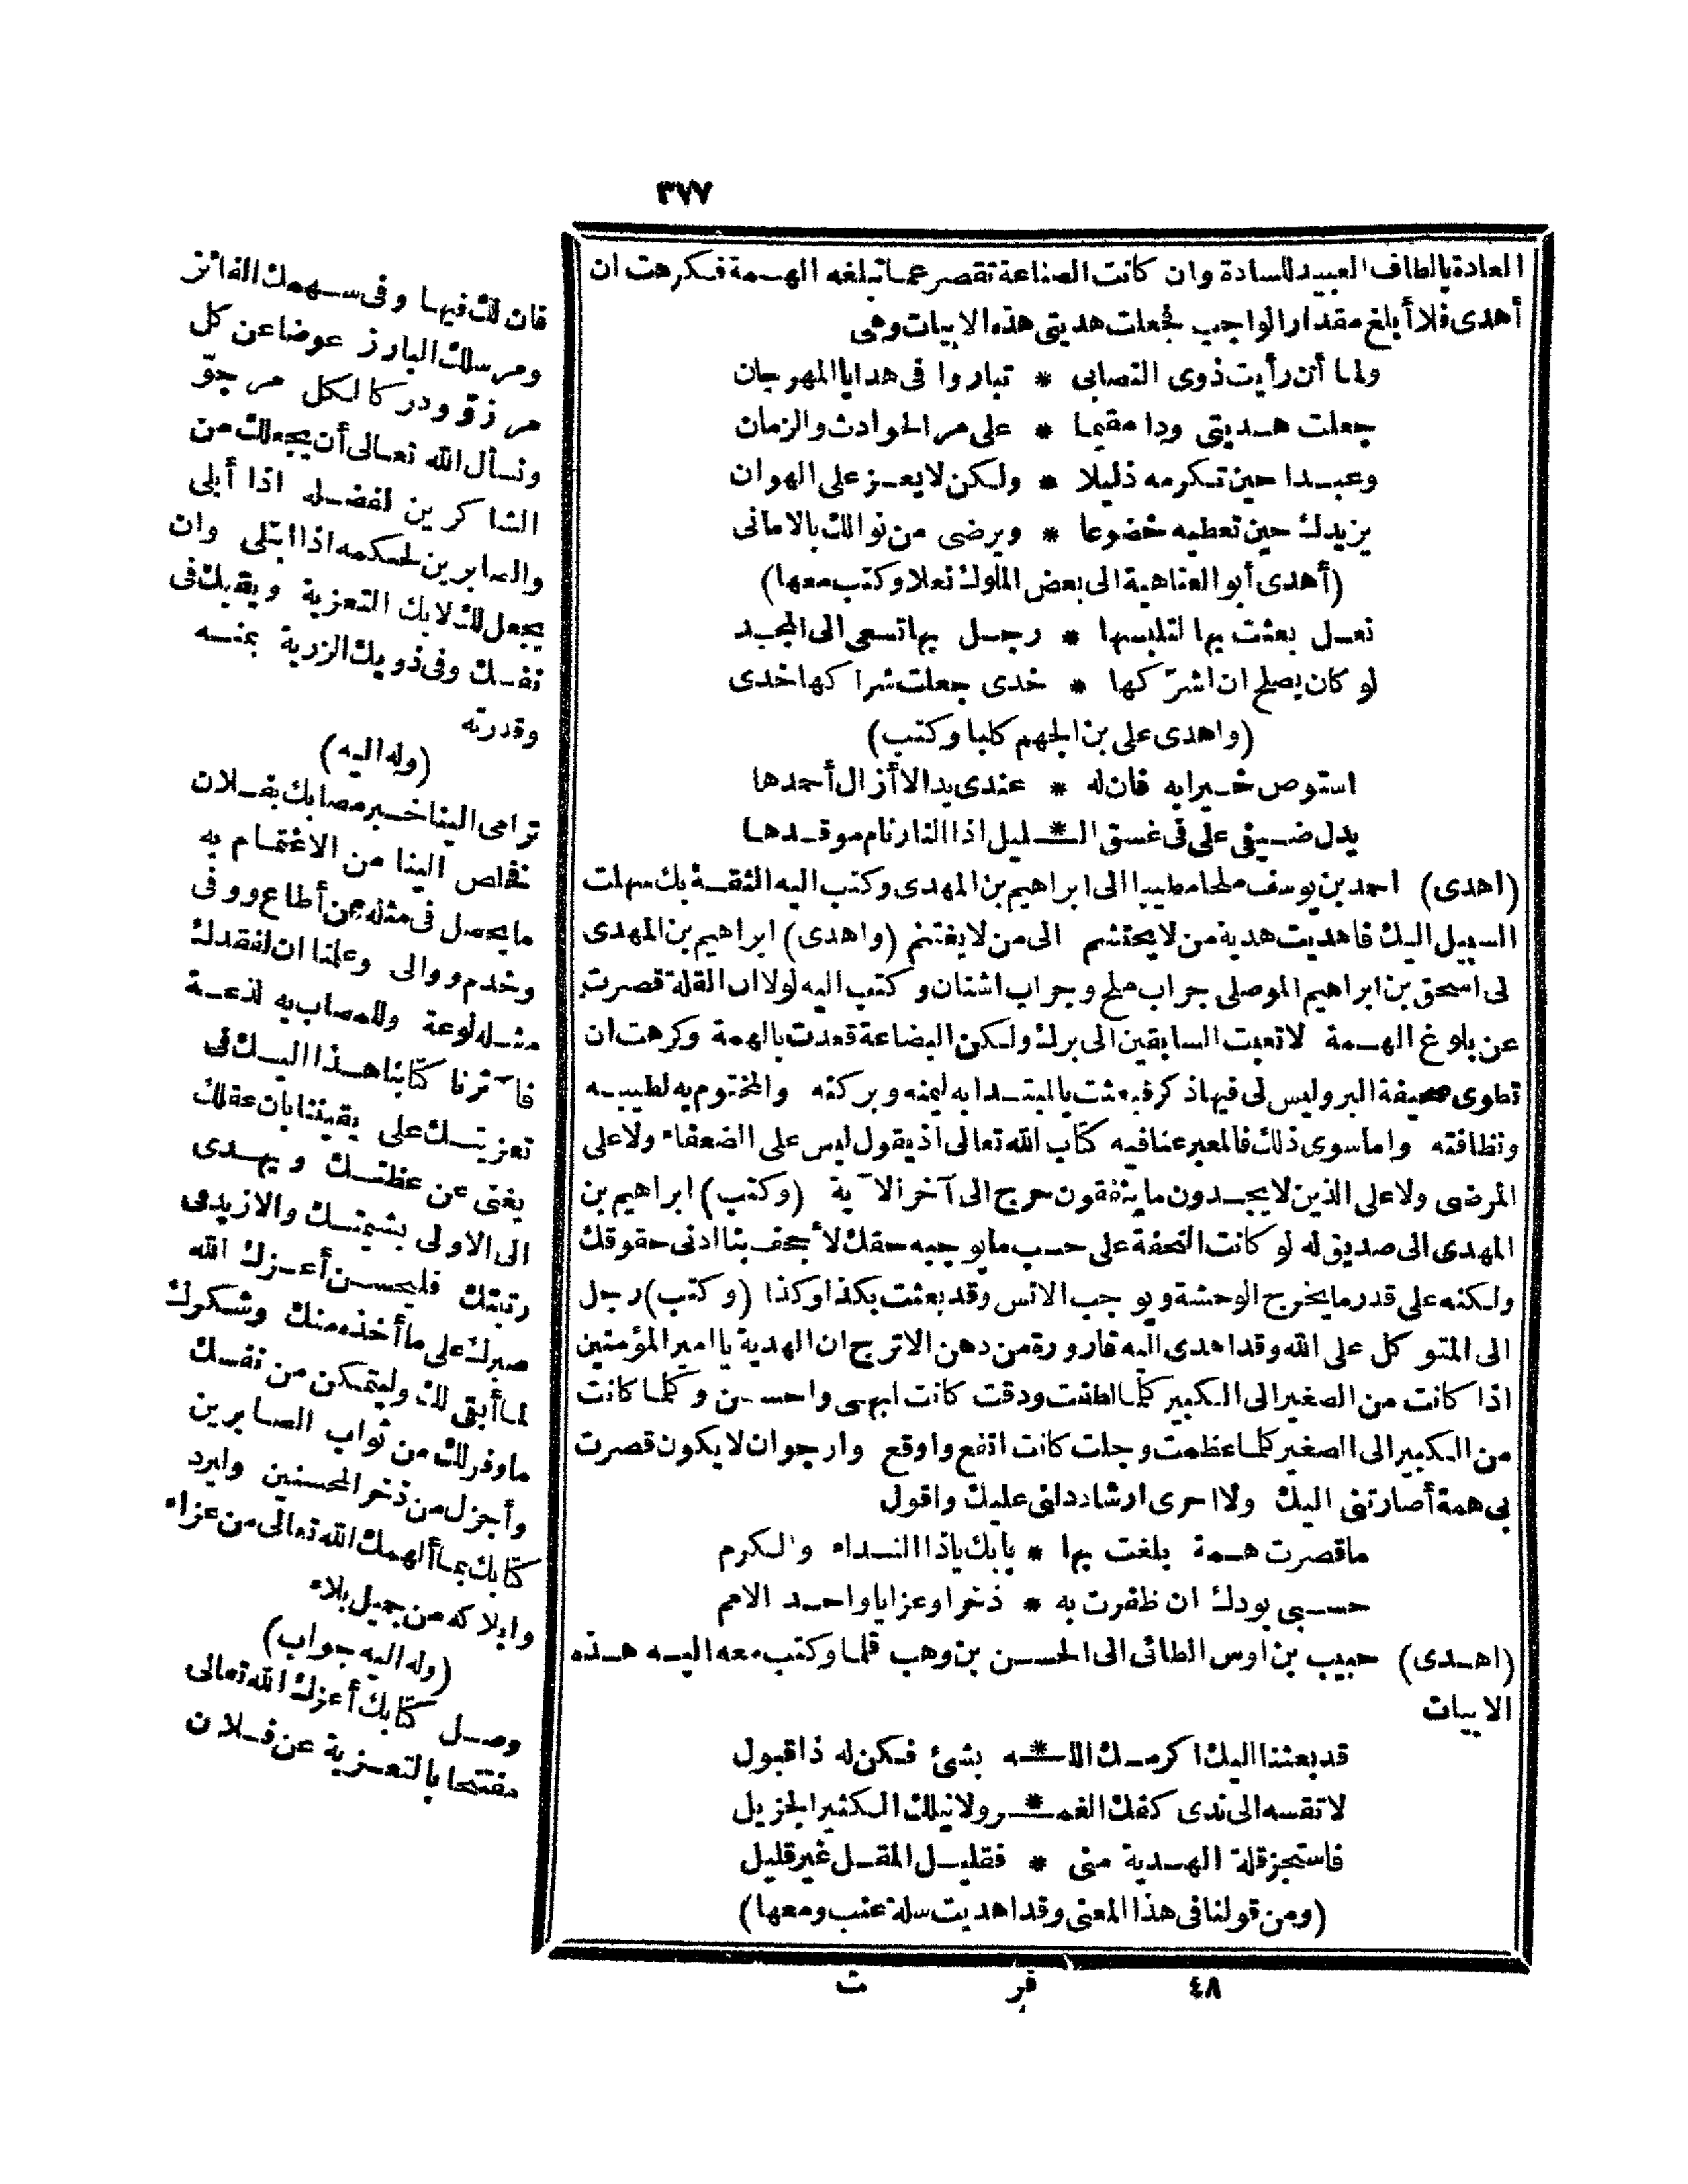 ٣٧٧
العادة بالطاف العبيد للسادة وان كانت الصناعة تقصر عما تبلغه الهمة فكرهت ان
أهدى فلا أبلغ مقدار الواجب فجعلت هديتى هذه الابيات وهى
ولما أن رأيت ذوى التصابى * تباروا فى هدايا المهرجان
جعلت هديتى ودا مقيما * على مر الحوادث والزمان
وعبدا حين تكرمه ذليلا * ولكن لا يعز على الهوان
يزيدك حين تعطيه خضوعا * ويرضى من نوالك بالامانى
(أهدى أبو العتاهية الى بعض الملوك نعلا وكتب معها)
نعل بعثت بها لتلبسها * رجل بها تسعى الى المجد
لو كان يصلح ان اشركها * خدى جعلت شراكها خدى
(واهدى على بن الجهم كلبا وكتب)
استوص خيرا به فان له * عندى يدا لا أزال أحمدها
يدل ضيفى على فى غسق الـ * ـليل اذا النار نام موقدها
(اهدى) احمد بن يوسف ملحا مطيبا الى ابراهيم بن المهدى وكتب اليه الثقة بك سهلت
السبيل اليك فاهديت هدية من لا يحتشم الى من لا يغتنم (واهدى) ابراهيم بن المهدى
لى اسحق بن ابراهيم الموصلى جراب ملح وجراب اشنان وكتب اليه لولا ان القلة قصرت
عن بلوغ الهمة لاتعبت السابقين الى برك ولكن البضاعة قعدت بالهمة وكرهت ان
تطوى صحيفة البر وليس لى فيها ذكر فبعثت بالمبتدا به ليمنه وبركته والمختوم به لطيبه
ونظافته واما سوى ذلك فالمعبر عنا فيه كتاب الله تعالى اذ يقول ليس على الضعفاء ولا على
المرضى ولا على الذين لا يجدون ما ينفقون حرج الى آخر الآية (وكتب) ابراهيم بن
المهدى الى صديق له لو كانت التحفة على حسب ما يوجبه حقك لأجحف بنا ادنى حقوقك
ولكنه على قدر ما يخرج الوحشة ويوجب الانس وقد بعثت بكذا وكذا (وكتب) رجل
الى المتوكل على الله وقد اهدى اليه قارورة من دهن الاترج ان الهدية يا امير المؤمنين
اذا كانت من الصغير الى الكبير كلما لطفت ودقت كانت ابهى واحسن وكلما كانت
من الكبير الى الصغير كلما عظمت وجلت كانت انفع واوقع وارجو ان لا يكون قصرت
بى همة أصارتنى اليك ولا اخرى ارشاد دلنى عليك واقول
ما قصرت همة بلغت بها * بابك يا ذا النداء والكرم
حسبى بودك ان ظفرت به * ذخرا وعزا يا واحد الامم
(اهدى) حبيب بن اوس الطائى الى الحسن بن وهب قلما وكتب معه اليه هذه
الابيات
قد بعثنا اليك اكرمك اللـ * ـه بشئ فكن له ذا قبول
لا تقسه الى ندى كفك الغمـ * ـر ولا نيلك الكثير الجزيل
فاستجز قلة الهدية منى * فقليل المقل غير قليل
(ومن قولنا فى هذا المعنى وقد اهديت سلة عنب ومعها)
٤٨ فر ت
فان لك فيها وفى سهمك الفائز
ومرسلك البارز عوضا عن كل
مرزؤ ودركا لكل مرجوّ
ونسأل الله تعالى أن يجعلك من
الشاكرين لفضله اذا أبلى
والصابرين لحكمه اذا ابتلى وان
يجعل لك لابك التعزية ويقيك فى
نفسك وفى ذويك الرزية بمنه
وقدرته
(وله اليه)
ترامى الينا خبر مصابك بفلان
فخلص الينا من الاغتمام به
ما يحصل فى مثله عمن أطاع ووفى
وخدم ووالى وعلمنا ان لفقدك
مثله لوعة وللمصاب به لذعة
فآثرنا كتابنا هذا اليك فى
تعزيتك على يقيننا بان عقلك
يغنى عن عظتك ويهدى
الى الاولى بشيمتك والازيد فى
رتبتك فليحسن أعزك الله
صبرك على ما أخذ منك وشكرك
لما أبقى لك وليتمكن من نفسك
ما وفر لك من ثواب الصابرين
وأجزل من ذخر المحسنين وليرد
كتابك بما ألهمك الله تعالى من عزاء
وابلاكه من جميل بلاء
(وله اليه جواب)
وصل كتابك أعزك الله تعالى
مفتتحا بالتعزية عن فلان